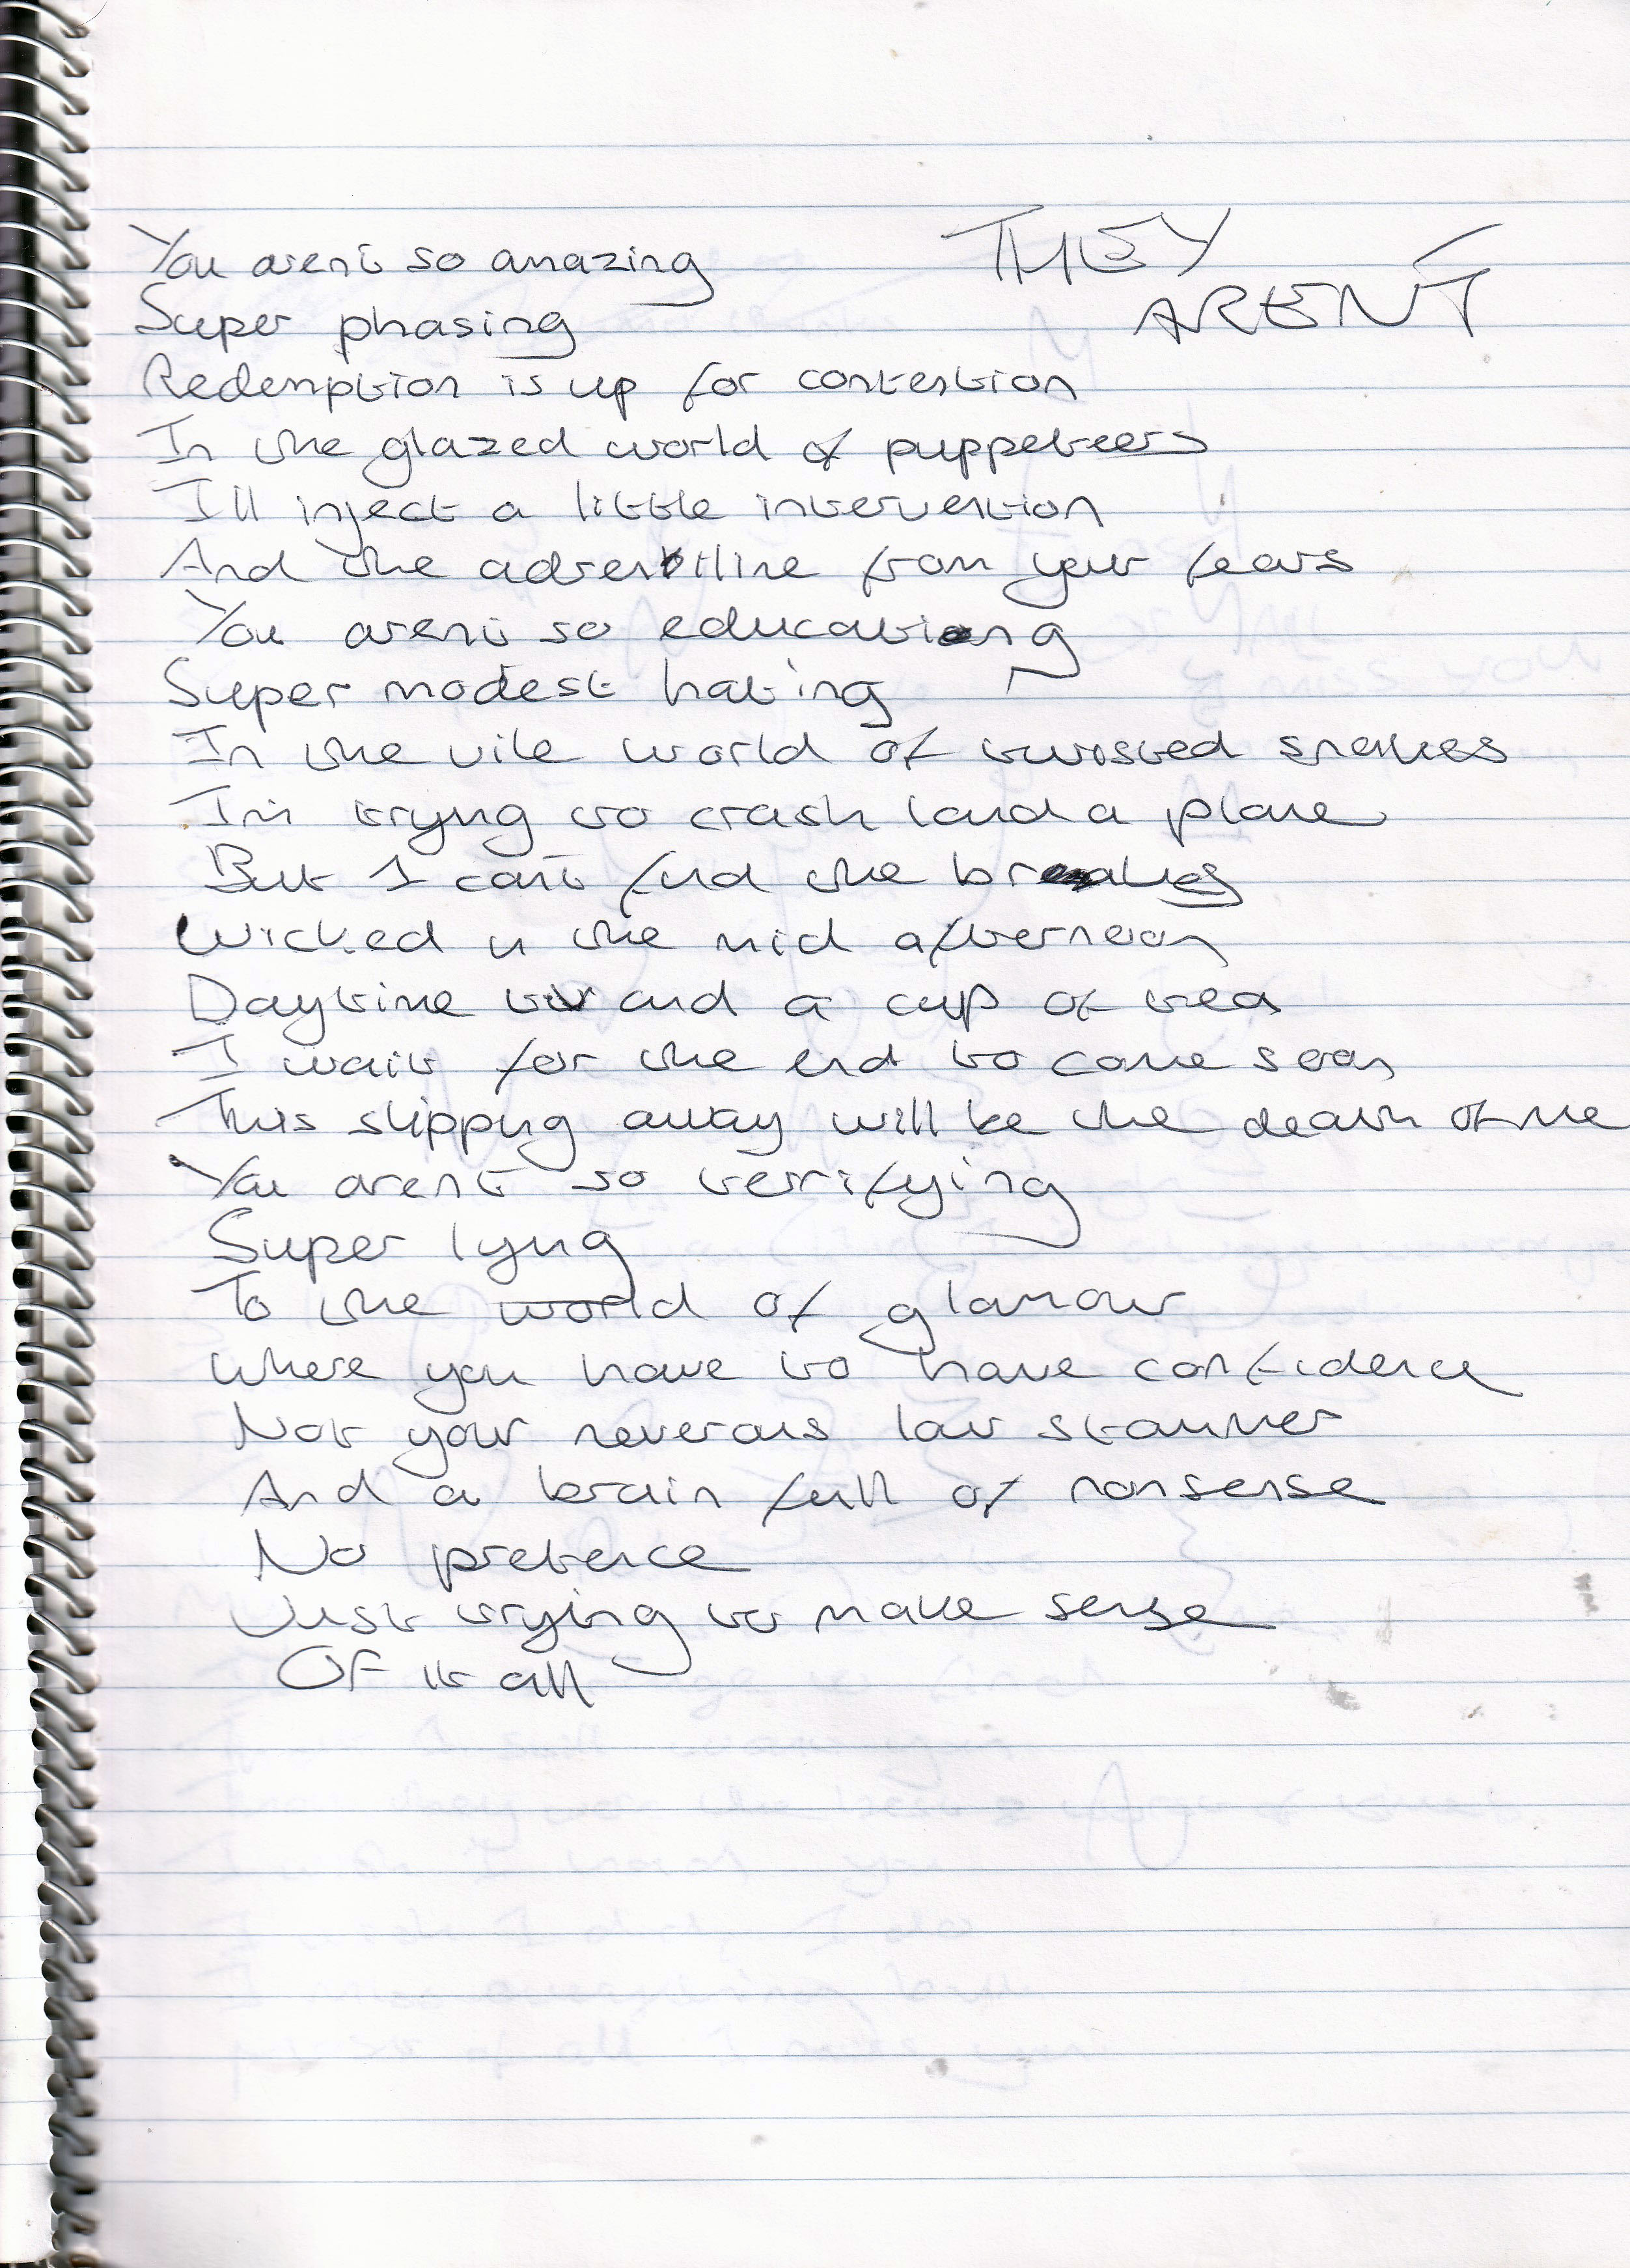 THEY
AREN'T
You aren't so amazing
Super phasing
Redemption is up for contention
In the glazed world of puppeteers
I'll inject a little intervention
And the adreniline from your fears
You aren't so educating
Super modest hating
In the vile world of twisted snakes
I'm trying to crash land a plane
But I can't find the brakes
Wicked in the mid afternoon
Daytime tv and a cup of tea
I wait for the end to come soon
This slipping away will be the death of me
You aren't so terrifying
Super lying
To the world of glamour
Where you have to have confidence
Not your nervous law stammer
And a brain full of nonsense
No pretence
Just trying to make sense
Of it all